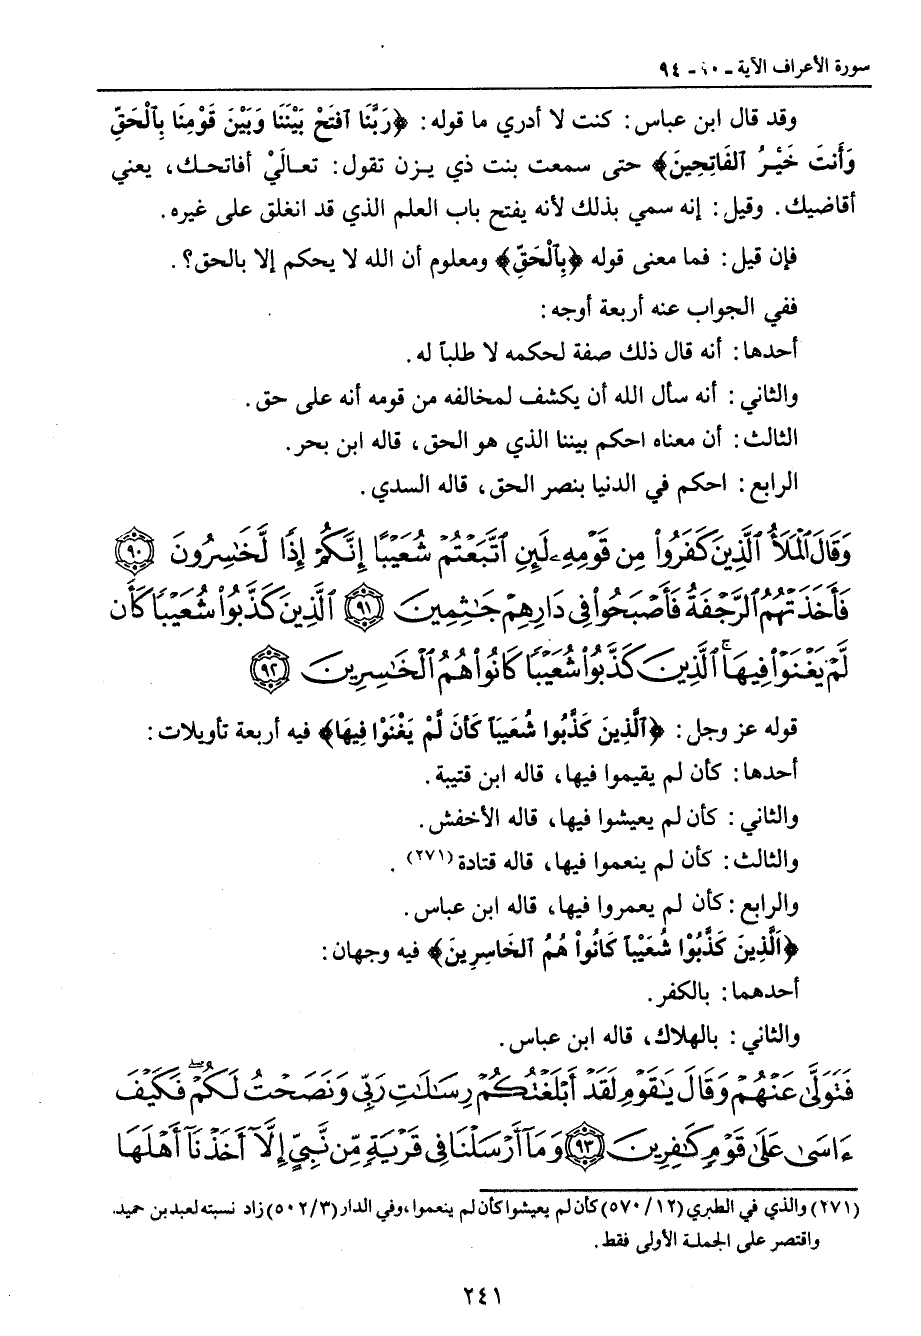 سورة الأعراف الآية - ٩٠ - ٩٤
وقد قال ابن عباس: كنت لا أدري ما قوله: ﴿رَبَّنَا ٱفتَحْ بَيْنَنَا وَبَيْنَ قَوْمِنَا بِٱلْحَقِّ
وَأَنتَ خَيْرُ ٱلفَاتِحِينَ﴾ حتى سمعت بنت ذي يزن تقول: تعالَيْ أفاتحك، يعني
أقاضيك. وقيل: إنه سمي بذلك لأنه يفتح باب العلم الذي قد انغلق على غيره.
فإن قيل: فما معنى قوله ﴿بِٱلْحَقِّ﴾ ومعلوم أن الله لا يحكم إلا بالحق؟.
ففي الجواب عنه أربعة أوجه:
أحدها: أنه قال ذلك صفة لحكمه لا طلباً له.
والثاني: أنه سأل الله أن يكشف لمخالفه من قومه أنه على حق.
الثالث: أن معناه احكم بيننا الذي هو الحق، قاله ابن بحر.
الرابع: احكم في الدنيا بنصر الحق، قاله السدي.
وَقَالَ ٱلْمَلَأُ ٱلَّذِينَ كَفَرُوا۟ مِن قَوْمِهِۦ لَئِنِ ٱتَّبَعْتُمْ شُعَيْبًا إِنَّكُمْ إِذًا لَّخَٰسِرُونَ ٩٠
فَأَخَذَتْهُمُ ٱلرَّجْفَةُ فَأَصْبَحُوا۟ فِى دَارِهِمْ جَٰثِمِينَ ٩١ ٱلَّذِينَ كَذَّبُوا۟ شُعَيْبًا كَأَن
لَّمْ يَغْنَوْا۟ فِيهَا ۚ ٱلَّذِينَ كَذَّبُوا۟ شُعَيْبًا كَانُوا۟ هُمُ ٱلْخَٰسِرِينَ ٩٢
قوله عز وجل: ﴿ٱلَّذِينَ كَذَّبُوا شُعَيباً كَأَن لَّمْ يَغْنَوْا فِيهَا﴾ فيه أربعة تأويلات:
أحدها: كأن لم يقيموا فيها، قاله ابن قتيبة.
والثاني: كأن لم يعيشوا فيها، قاله الأخفش.
والثالث: كأن لم ينعموا فيها، قاله قتادة(٢٧١).
والرابع: كأن لم يعمروا فيها، قاله ابن عباس.
﴿ٱلَّذِينَ كَذَّبُوْا شُعَيْباً كَانُواْ هُمُ ٱلخَاسِرِينَ﴾ فيه وجهان:
أحدهما: بالكفر.
والثاني: بالهلاك، قاله ابن عباس.
فَتَوَلَّىٰ عَنْهُمْ وَقَالَ يَٰقَوْمِ لَقَدْ أَبْلَغْتُكُمْ رِسَٰلَٰتِ رَبِّى وَنَصَحْتُ لَكُمْ ۖ فَكَيْفَ
ءَاسَىٰ عَلَىٰ قَوْمٍ كَٰفِرِينَ ٩٣ وَمَآ أَرْسَلْنَا فِى قَرْيَةٍ مِّن نَّبِىٍّ إِلَّآ أَخَذْنَآ أَهْلَهَا
(٢٧١) والذي في الطبري (١٢/٥٧٠) كأن لم يعيشوا كأن لم ينعموا، وفي الدار (٣/٥٠٢) زاد نسبته لعبد بن حميد.
واقتصر على الجملة الأولى فقط.
٢٤١